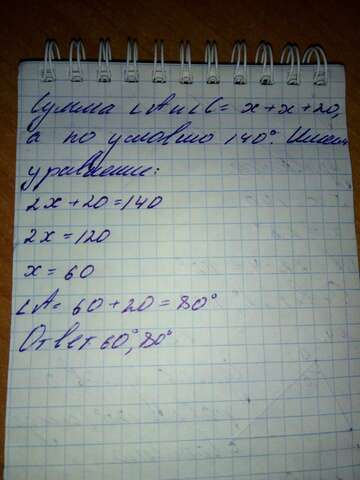 Сумма ∠A и ∠C = x+x+20,
а по условию 140°. Имеем
уравнение:
2x+20=140
2x=120
x=60
∠A= 60+20=80°
Ответ 60°, 80°